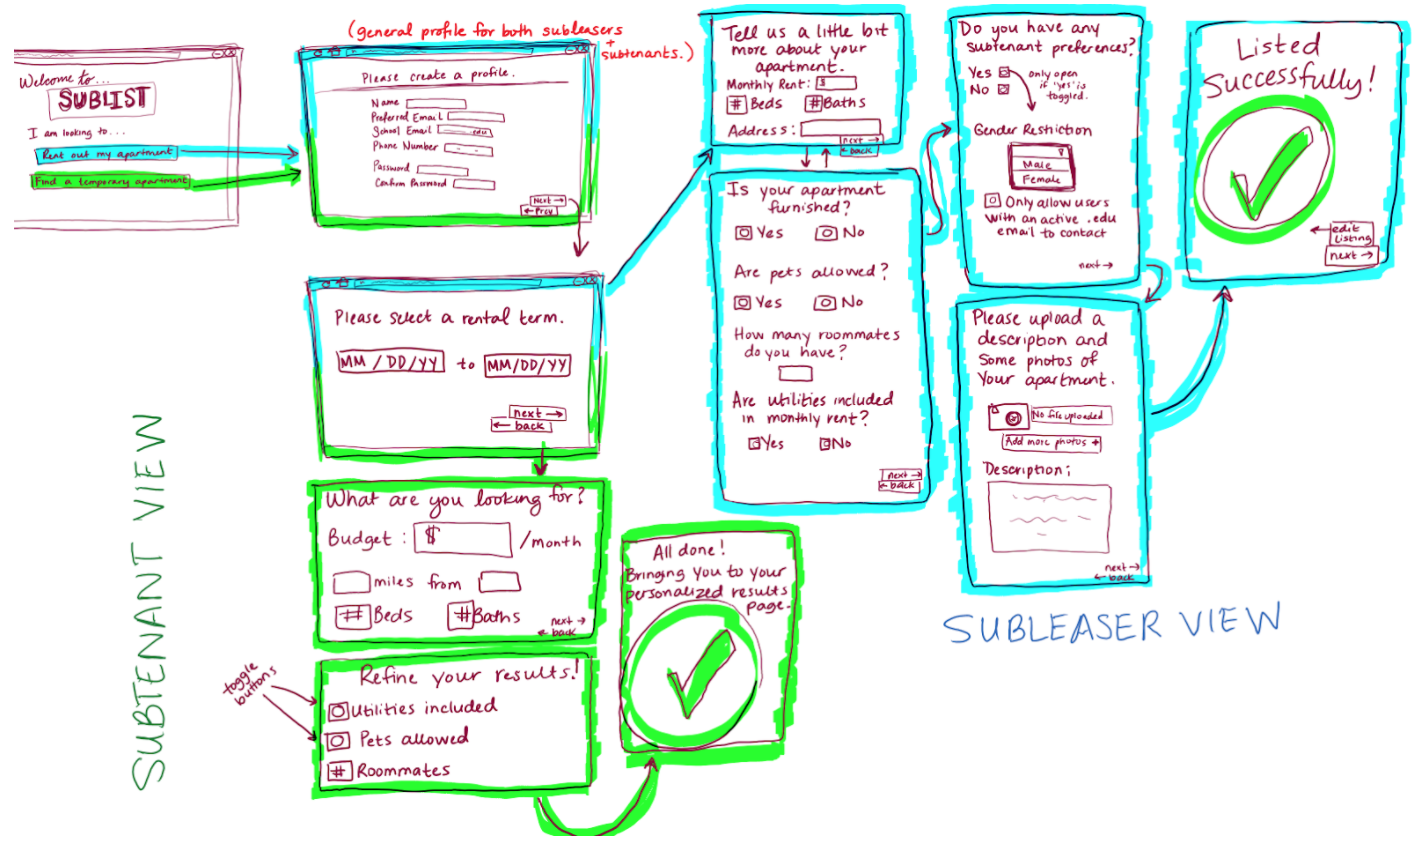 Welcome to...
SUBLIST
I am looking to...
Rent out my apartment
Find a temporary apartment
(general profile for both subleasers
+
subtenants.)
Please create a profile.
Name
Preferred Email
School Email .edu
Phone Number - -
Password
Confirm Password
Next →
← Prev
Please select a rental term.
MM/DD/YY to MM/DD/YY
next →
← back
SUBTENANT VIEW
What are you looking for?
Budget: $ /month
miles from
# Beds # Baths
next →
← back
toggle
buttons
Refine your results!
Utilities included
Pets allowed
# Roommates
All done!
Bringing you to your
personalized results
page.
Tell us a little bit
more about your
apartment.
Monthly Rent: $
# Beds # Baths
Address:
next →
← back
Is your apartment
furnished?
Yes No
Are pets allowed?
Yes No
How many roommates
do you have?
Are utilities included
in monthly rent?
Yes No
next →
← back
Do you have any
subtenant preferences?
Yes
No
only open
if 'yes' is
toggled.
Gender Restriction
Male
Female
Only allow users
with an active .edu
email to contact
next →
Please upload a
description and
Some photos of
Your apartment.
No file uploaded
Add more photos +
Description:
next →
← back
Listed
Successfully!
← edit
listing
next →
SUBLEASER VIEW